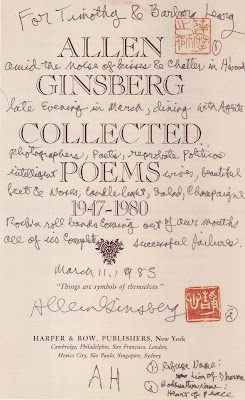 For Timothy & Barbara Leary
ALLEN
amid the noise of kisses & chatter in H'wood
GINSBERG
late Evening in March, dining with Agents
COLLECTED
photographers, Poets, reprobate Politicos
POEMS
intelligent wives, beautiful
feet & Noses, Candle-light, Salad, Champaigne
1947-1980
Rock'n roll bands Coming out of our mouths
all of us Complete, successful failures.
March 11, 1985
"Things are symbols of themselves."
Allen Ginsberg
HARPER & ROW, PUBLISHERS, New York
Cambridge, Philadelphia, San Francisco, London,
Mexico City, São Paulo, Singapore, Sydney
AH
① Refuge Name:
Lion of Dharma
② Bodhisattva Name:
Heart of Peace